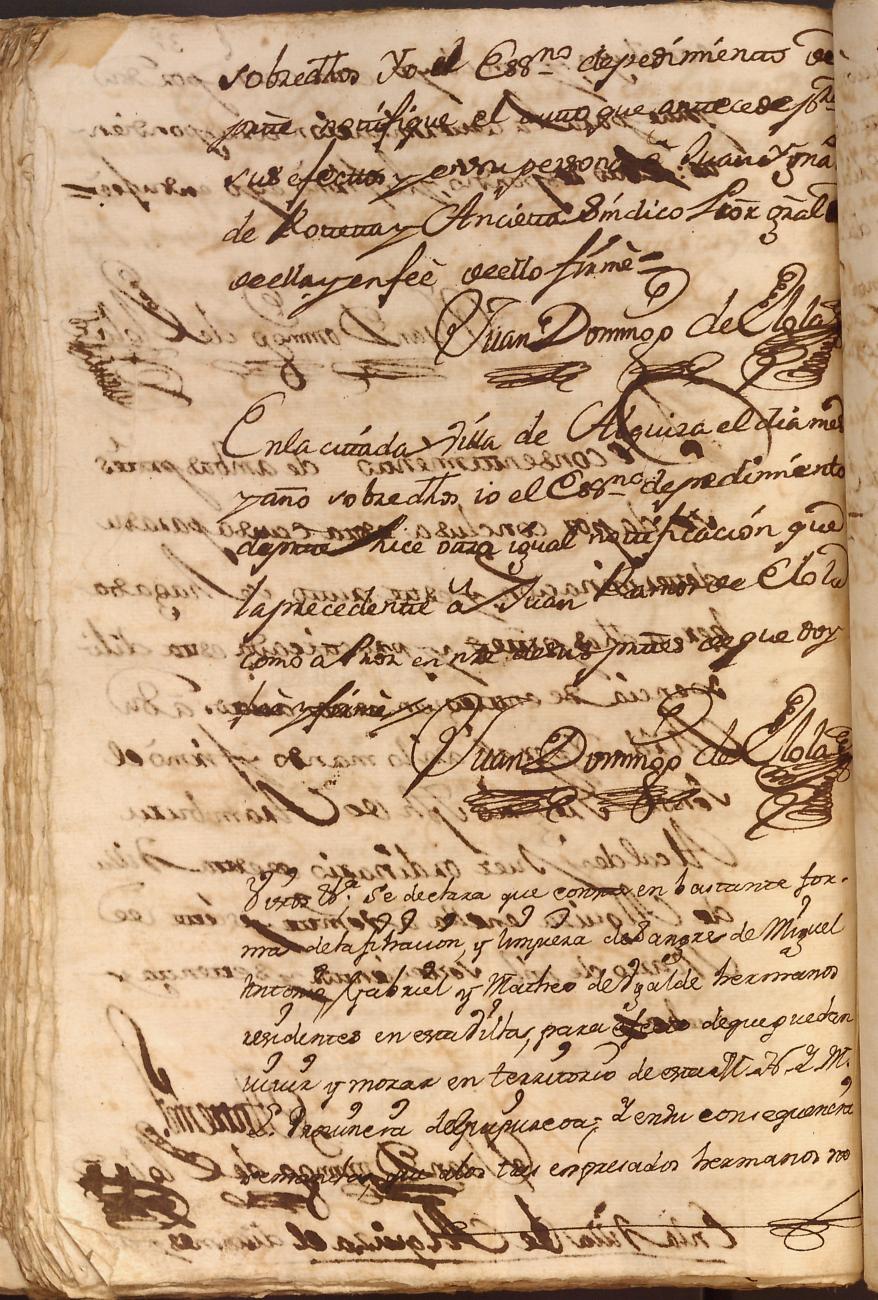 sobredhos Yo el Essno depedimiento de
parte notifique el auto que antecede pra
sus efectos y en su persona à Juan Ygna
de Rotetta y Ancieta Sindico Pror gral
de ella y en feè de ello firmè =
Juan Domingo de Elola
En la citada Villa de Alquiza el dia mes
y año sobredhos io el Essno de pedimiento
de parte hice otra igual notificación que
la precedente à Juan Ramos de Elola
como a Pror en nre de sus partes de que doy
feè y firmè
Juan Domingo de Elola
Vistos &a. Se declara que consta en bastante for-
ma de la filiacion, y limpieza de sangre de Miguel
Antonio, Gabriel y Matheo de Ygalde hermanos
residentes en esta Villa, para efecto de que puedan
vivir y morar en territorio de esta M. N. Y M.
L. Provincia de Guipuzcoa; Y en su consequencia
se manda, que a los tres expresados hermanos no